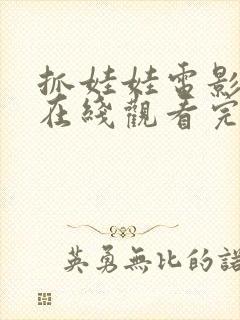 抓娃娃電影
在綫觀看完
英勇無比的諾